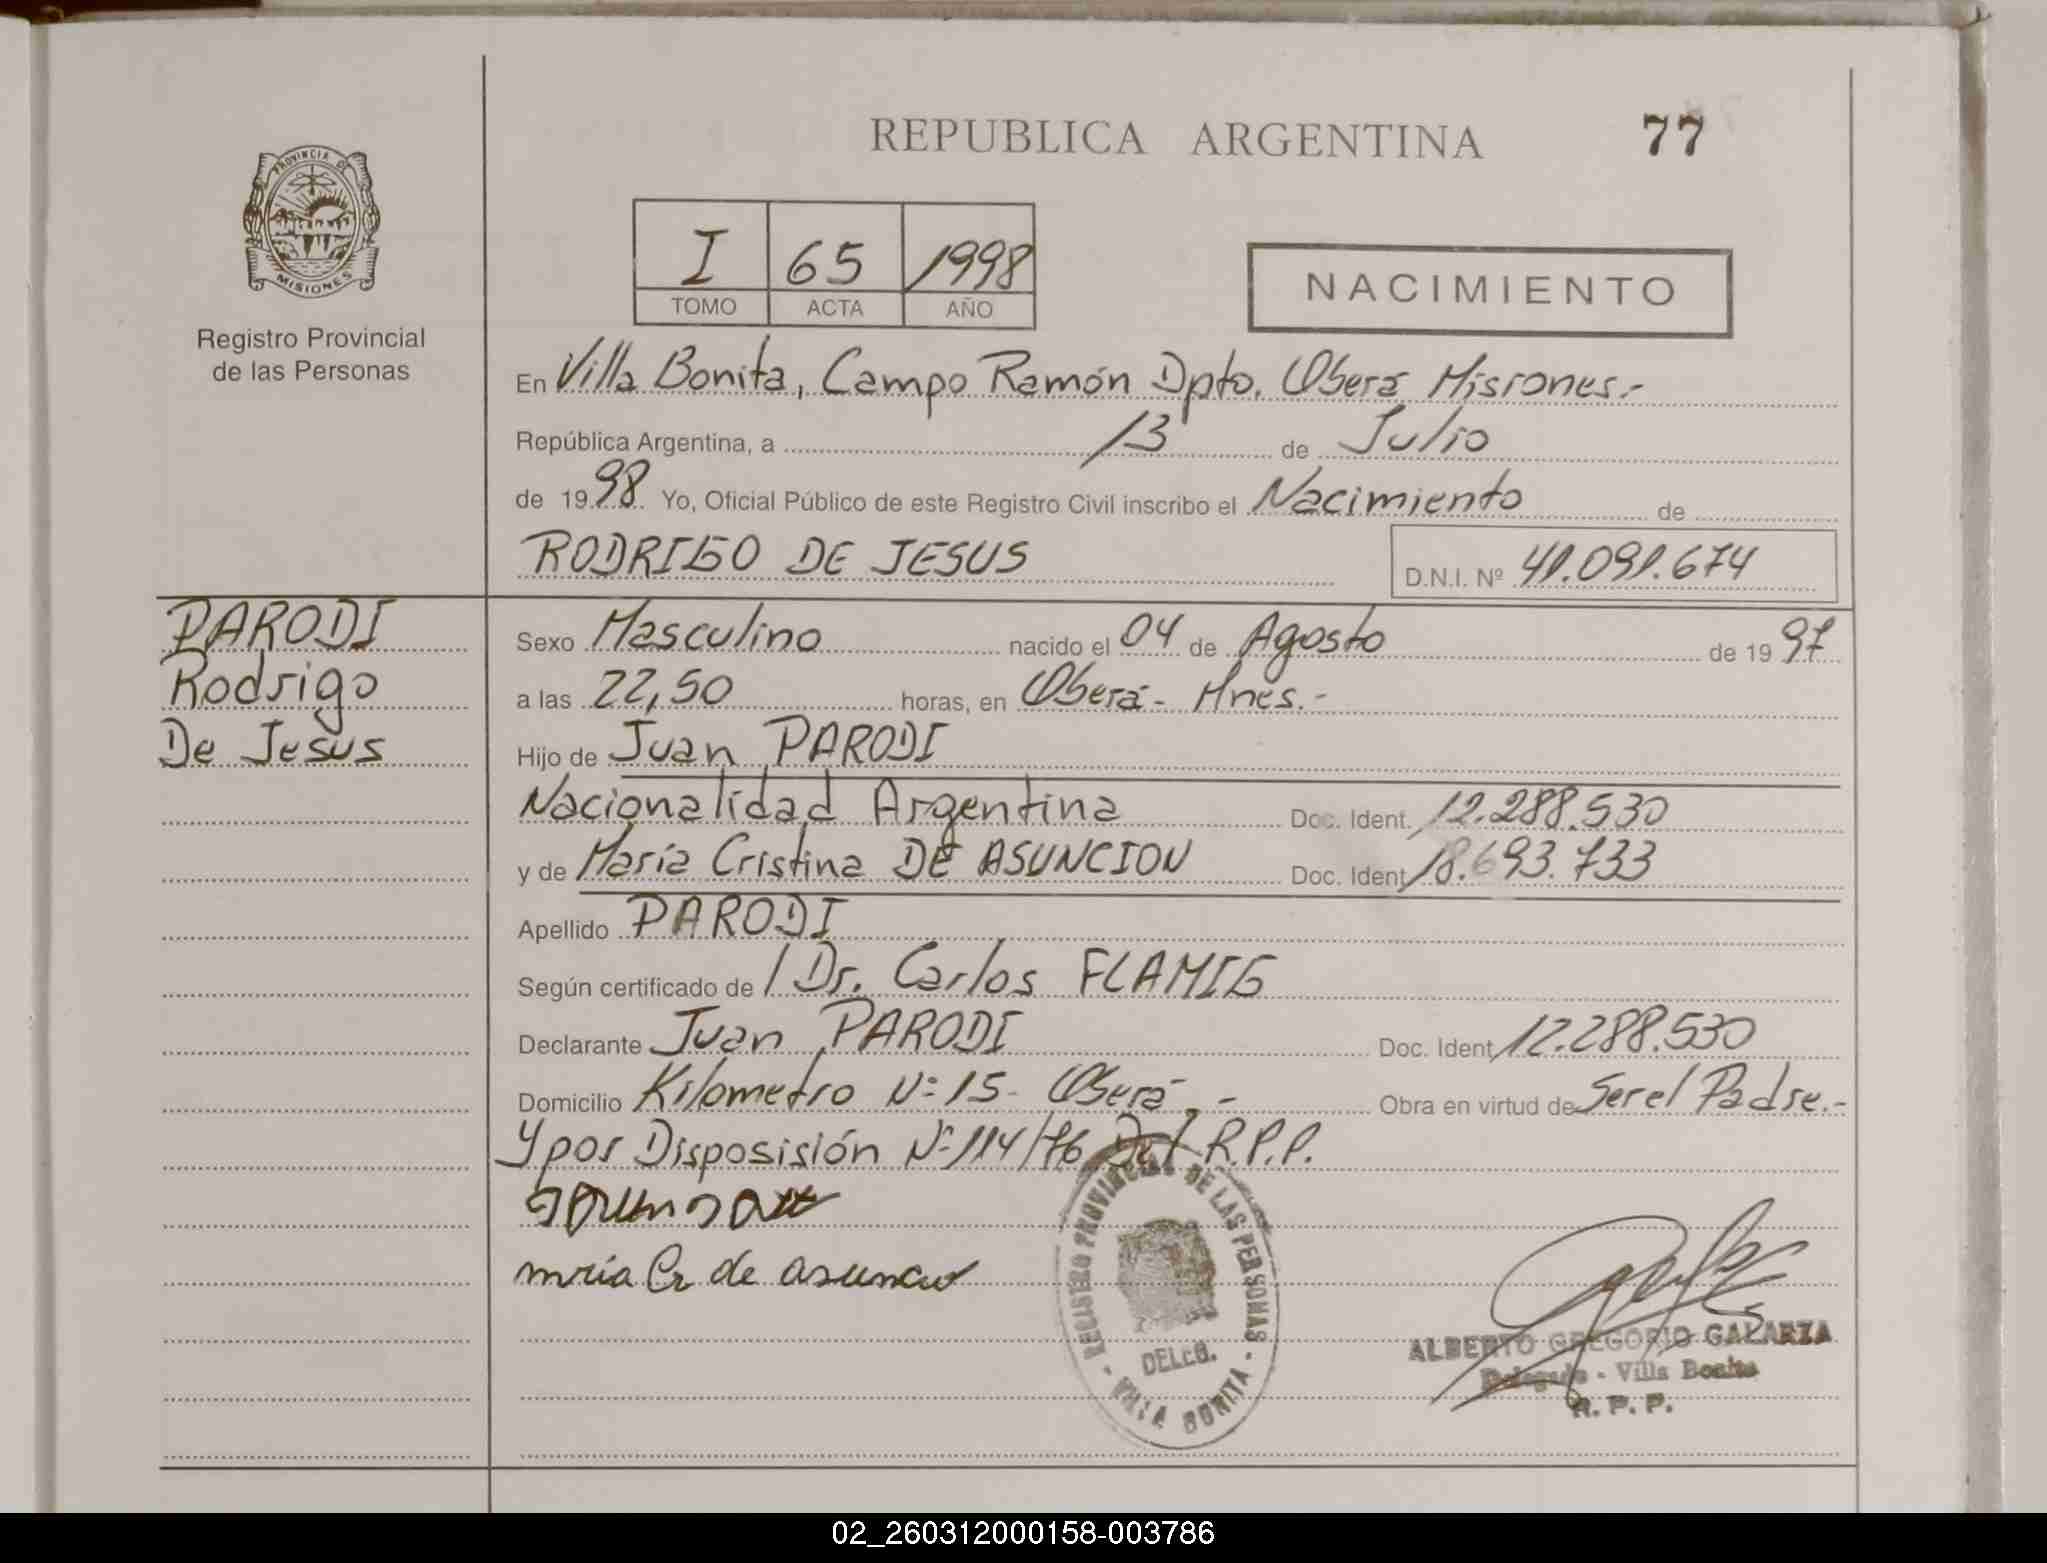 REPUBLICA ARGENTINA
77
PROVINCIA DE
MISIONES
Registro Provincial
de las Personas
I 65 1998
TOMO ACTA AÑO
NACIMIENTO
En Villa Bonita, Campo Ramón Dpto. Oberá Misiones.-
República Argentina, a 13 de Julio
de 1998 Yo, Oficial Público de este Registro Civil inscribo el Nacimiento de
RODRIGO DE JESUS
D.N.I. Nº 41.091.674
PARODI
Rodrigo
De Jesus
Sexo Masculino nacido el 04 de Agosto de 1997
a las 22,50 horas, en Oberá - Mnes.-
Hijo de Juan PARODI
Nacionalidad Argentina Doc. Ident. 12.288.530
y de María Cristina DE ASUNCION Doc. Ident 18.693.733
Apellido PARODI
Según certificado de / Dr. Carlos FLAMIG
Declarante Juan PARODI Doc. Ident 12.288.530
Domicilio Kilometro Nº 15 - Oberá - Obra en virtud de Ser el Padre.-
Y por Disposisión Nº 114/76 Del R.P.P.
mria Cr de asuncio
REGISTRO PROVINCIAL DE LAS PERSONAS
DELEG.
- VILLA BONITA -
ALBERTO GREGORIO GALARZA
Delegado - Villa Bonita
R. P. P.
02_260312000158-003786